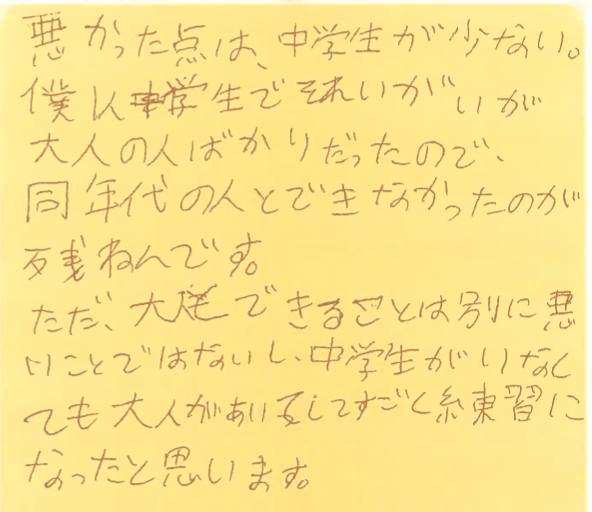 悪かった点は、中学生が少ない。
僕1人中学生でそれいがいが
大人の人ばかりだったので、
同年代の人とできなかったのが
残ねんです。
ただ、大人とできることは別に悪
いことではないし、中学生がいなく
ても大人があいてしてすごく練習に
なったと思います。